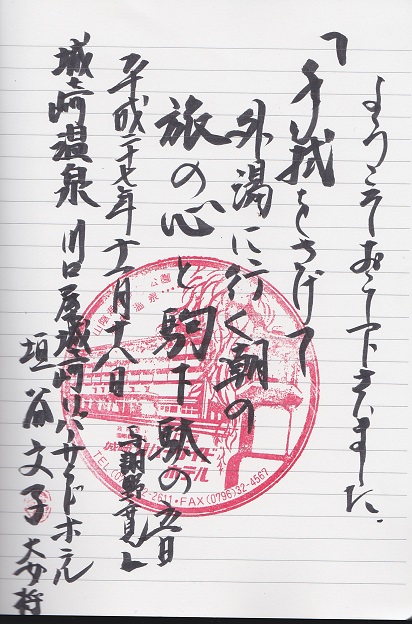 ようこそおこし下さいました。
「手拭をさげて
外湯に行く朝の
旅の心と駒下駄の音
与謝野寛」
平成二十七年十一月十八日
城崎温泉 川口屋城崎リバーサイドホテル
垣谷文子 女将
山陰海岸 公園
温泉
ホテル
2611・FAX(0796)32-4567